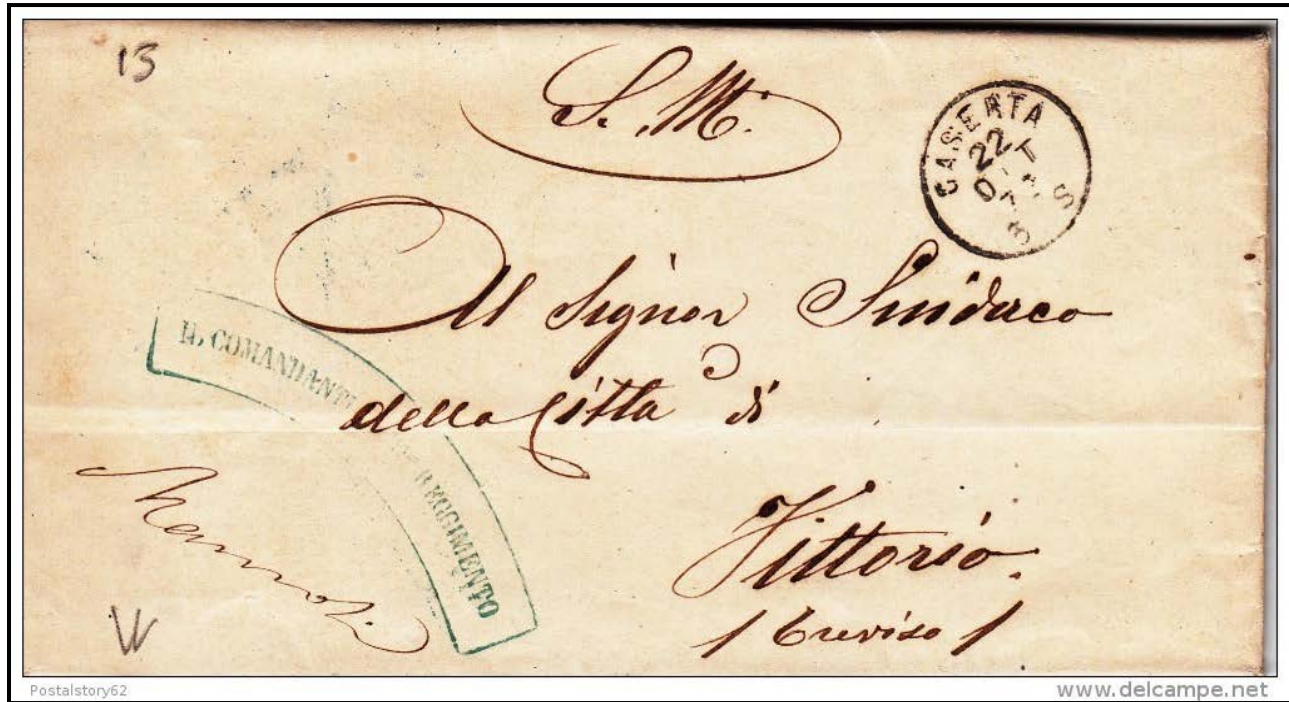 13
S. M.
CASERTA
22
8 S
Al Signor Sindaco
della Città di
Vittorio.
/ Treviso /
IL COMANDANTE
REGGIMENTO
Postalstory62
www.delcampe.net